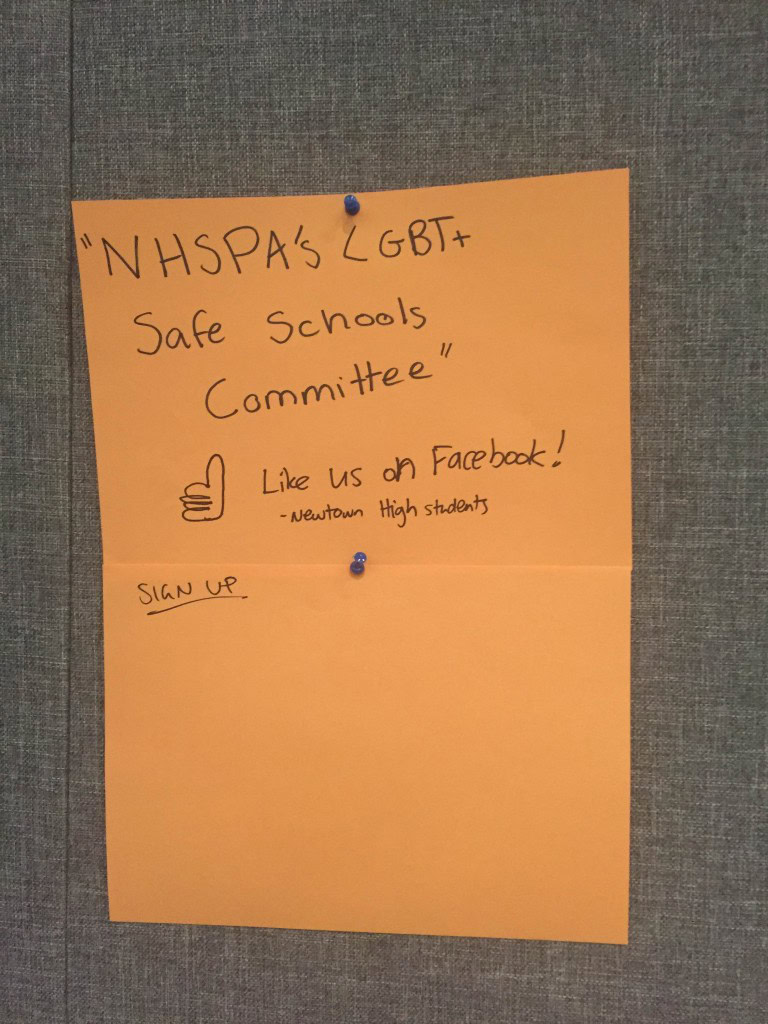 "NHSPA's LGBT+
Safe Schools
Committee"
Like us on Facebook!
-Newtown High students
SIGN UP